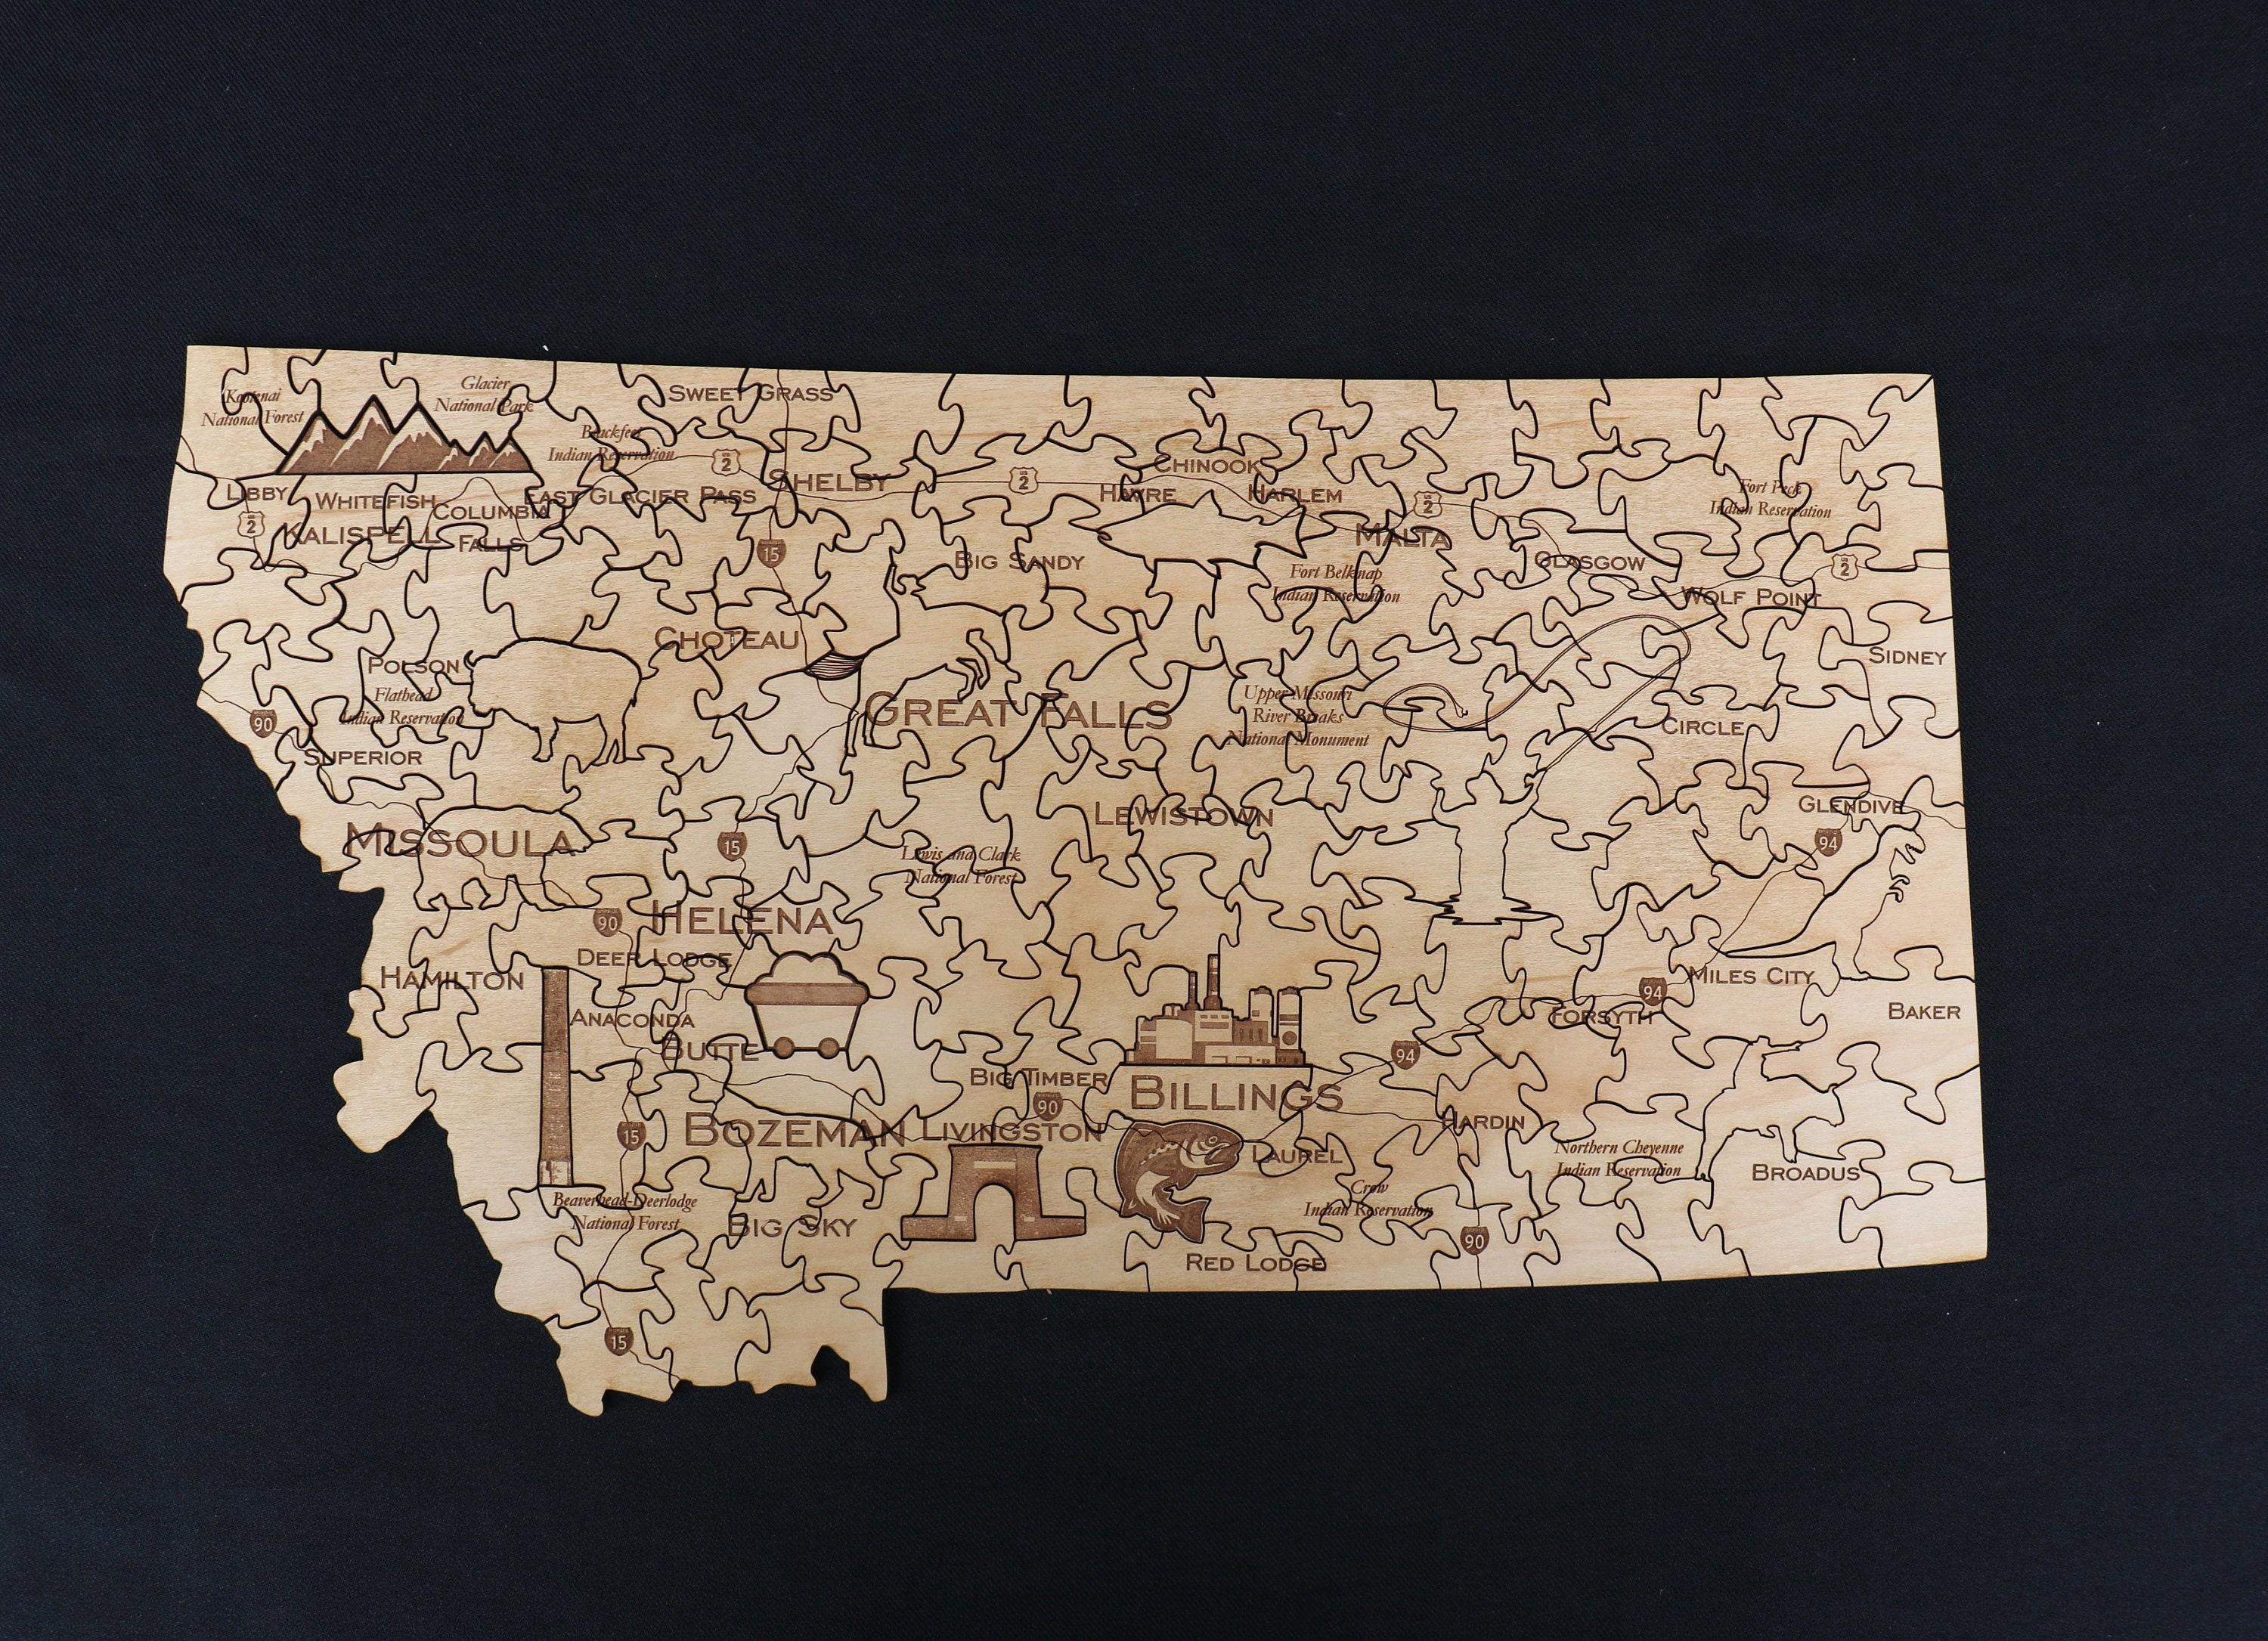 Kootenai
National Forest
Glacier
National Park
SWEET GRASS
Blackfeet
Indian Reservation
US
2
SHELBY
US
2
CHINOOK
HAVRE
HARLEM
US
2
MALTA
Fort Peck
Indian Reservation
LIBBY
US
2
WHITEFISH
COLUMBIA
FALLS
EAST GLACIER PASS
KALISPELL
15
BIG SANDY
Fort Belknap
Indian Reservation
GLASGOW
US
2
WOLF POINT
CHOTEAU
SIDNEY
POLSON
Flathead
Indian Reservation
90
SUPERIOR
GREAT FALLS
Upper Missouri
River Breaks
National Monument
CIRCLE
MISSOULA
15
LEWISTOWN
GLENDIVE
94
Lewis and Clark
National Forest
90
HELENA
DEER LODGE
HAMILTON
MILES CITY
94
FORSYTH
BAKER
ANACONDA
BUTTE
94
BIG TIMBER
90
BILLINGS
HARDIN
15
BOZEMAN
LIVINGSTON
LAUREL
Northern Cheyenne
Indian Reservation
BROADUS
Crow
Indian Reservation
Beaverhead-Deerlodge
National Forest
BIG SKY
90
RED LODGE
15